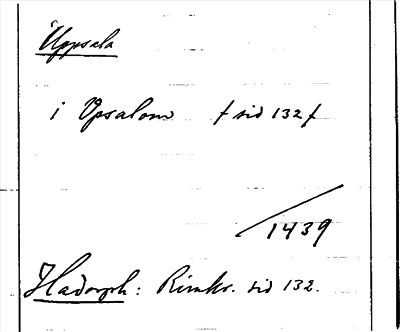 Uppsala
i Upsalom f sid 132 f
1439
Hadorph: Rimkr. sid 132.